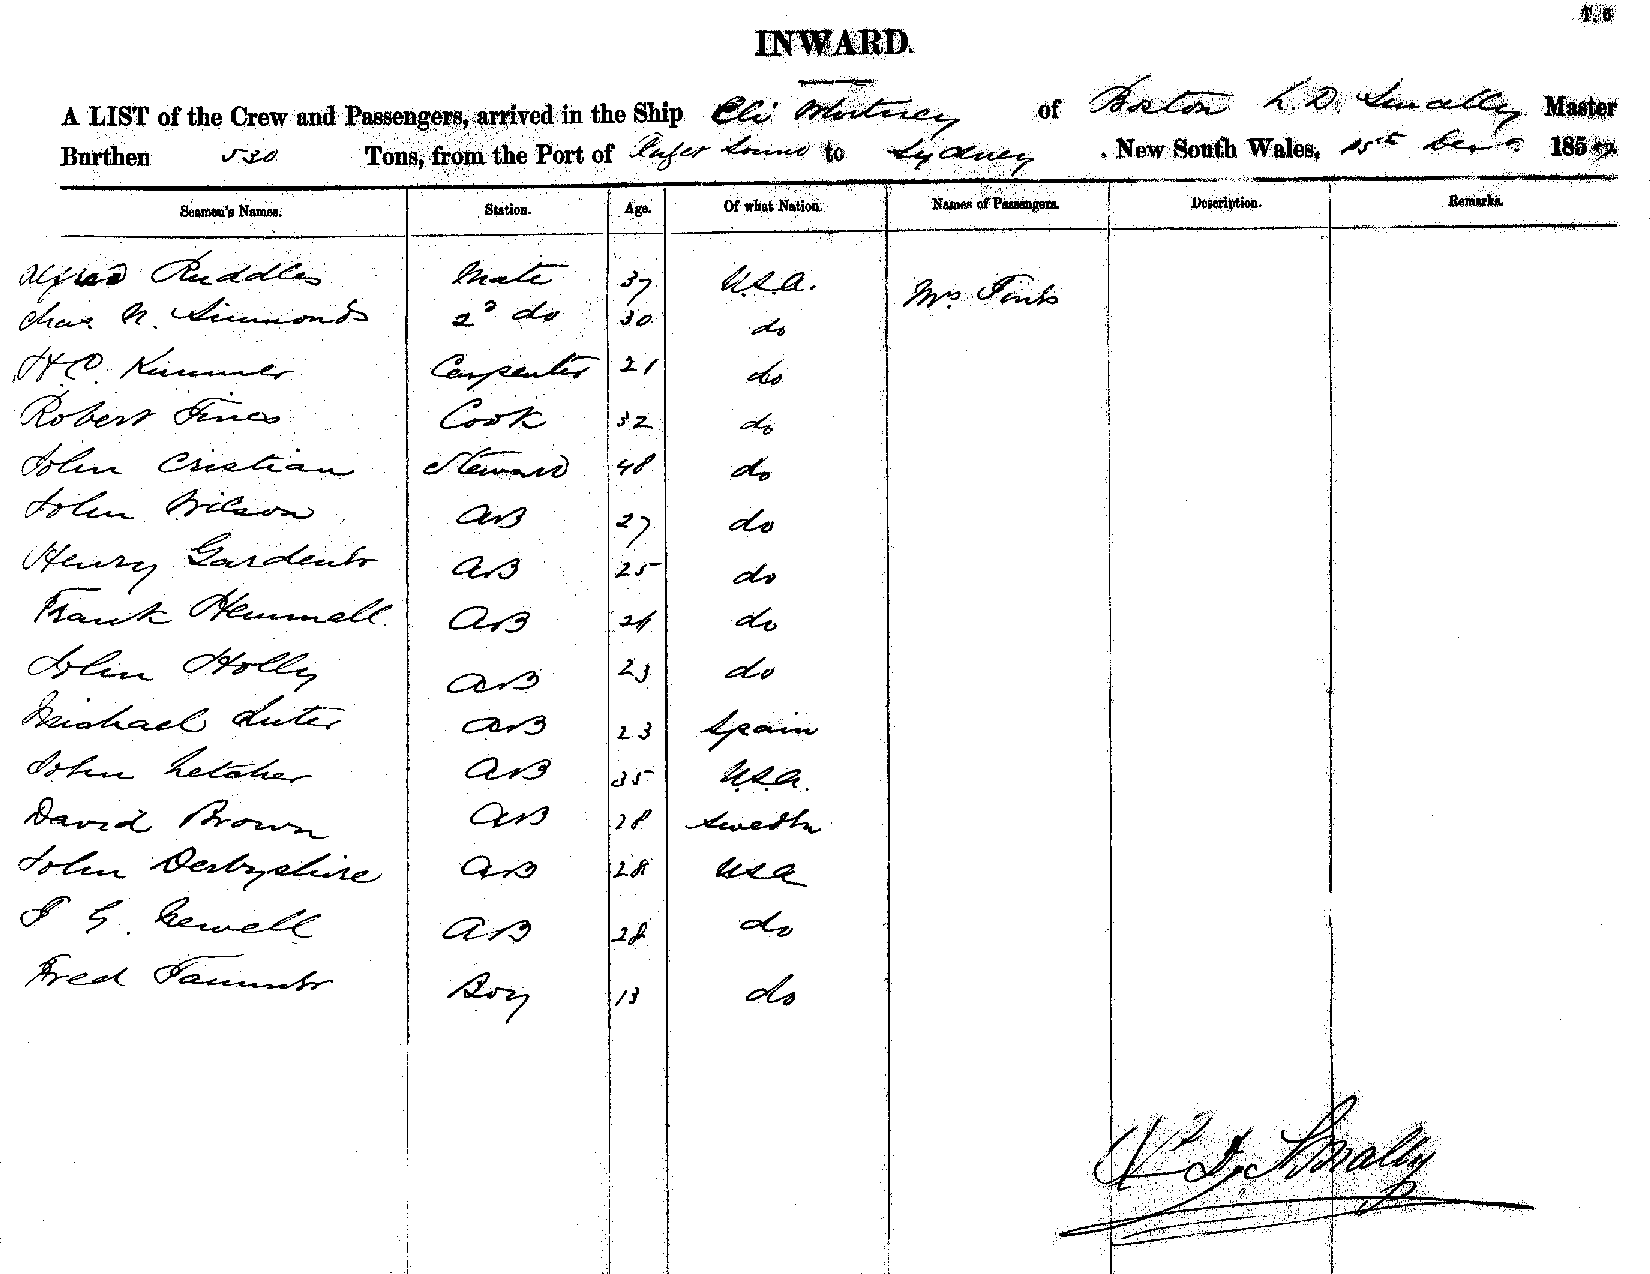 T. 6
INWARD.
A LIST of the Crew and Passengers, arrived in the Ship Eli Whitney of Boston L. D. Smally Master
Burthen 530 Tons, from the Port of to Sydney . New South Wales, 15th Dec 185
Seamen's Names. Station. Age. Of what Nation. Names of Passengers. Description. Remarks.
Alfred Ruddles Mate 37 U.S.A. Mrs. Tinks
Chas N. Simmonds 2d do 30 do
H.C. Carpenter 21 do
Robert Fines Cook 32 do
John Cristian Steward 48 do
John Wilson AB 27 do
Henry Gardener AB 25 do
Frank Hemmell AB do
John Holly AB 23 do
Michael Luter AB 23 Spain
John Letcher AB 35 U.S.A.
David Brown AB 28 Sweden
John Derbyshire AB 28 USA
G. Newell AB 28 do
Fred Boy 13 do
D. Smally